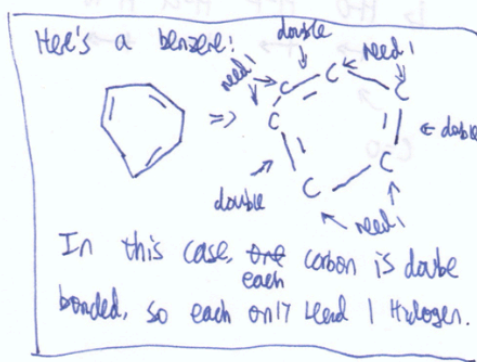 Here's a benzene:
double
need 1
need 1
C
C
C
C
double
C
C
double
need 1
In this case, one each carbon is double
bonded, so each only need 1 Hydrogen.